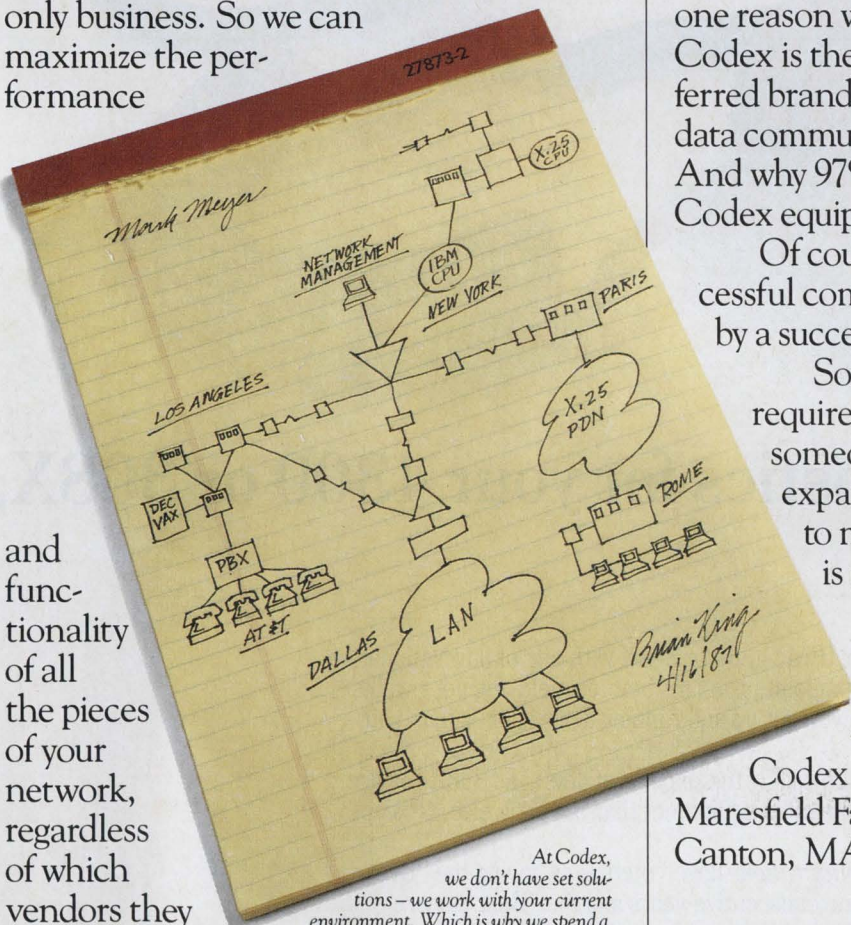 only business. So we can
maximize the per-
formance
and
func-
tionality
of all
the pieces
of your
network,
regardless
of which
vendors they
27873-2
Mark Meyer
X.25
CPU
NETWORK
MANAGEMENT
IBM
CPU
NEW YORK
PARIS
LOS ANGELES
X.25
PDN
DEC
VAX
ROME
PBX
AT&T
DALLAS
LAN
Brian King
4/16/87
At Codex,
we don't have set solu-
tions – we work with your current
environment. Which is why we spend a
one reason
Codex is the
ferred brand
data commu
And why 97%
Codex equip
Of cou
cessful con
by a succe
So
require
someo
expa
to
is
Codex
Maresfield Fa
Canton, MA